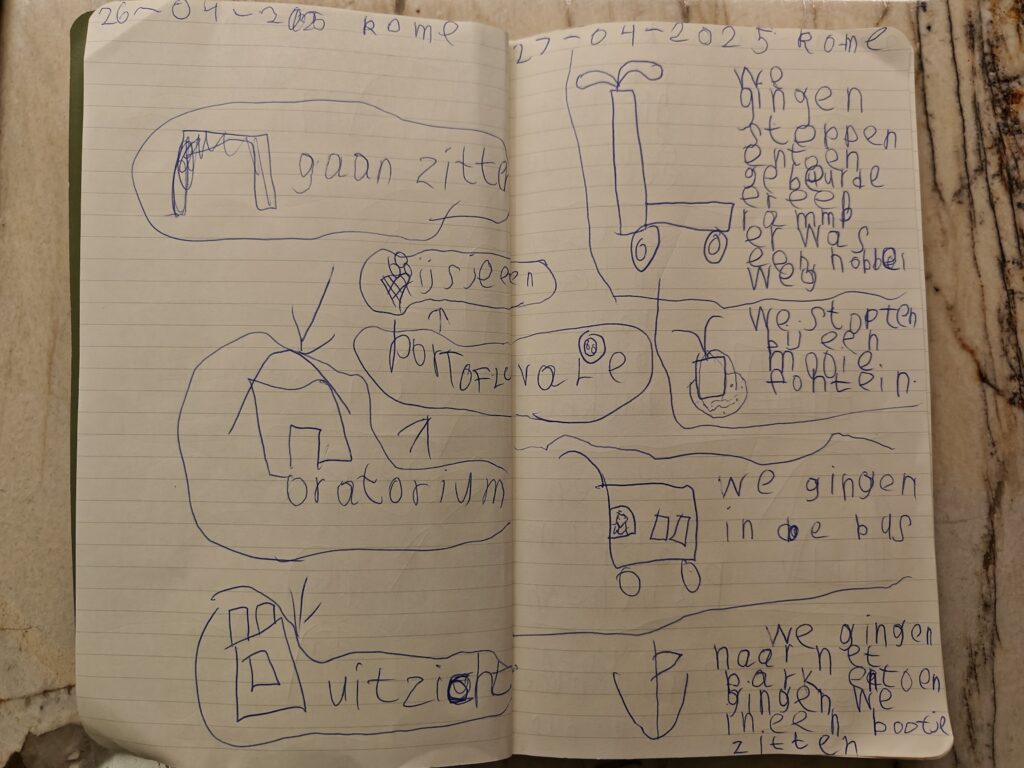 26-04-2025 rome
gaan zitten
ijsjeeen
oratorium
uitzicht
27-04-2025 rome
we
gingen
steppen
entoen
gebeurde
er een
rammp
er was
een hobbel
weg
we stopten
bij een
mooie
fontein.
we gingen
in de bus
we gingen
naar het
park entoen
gingen we
in een bootje
zitten